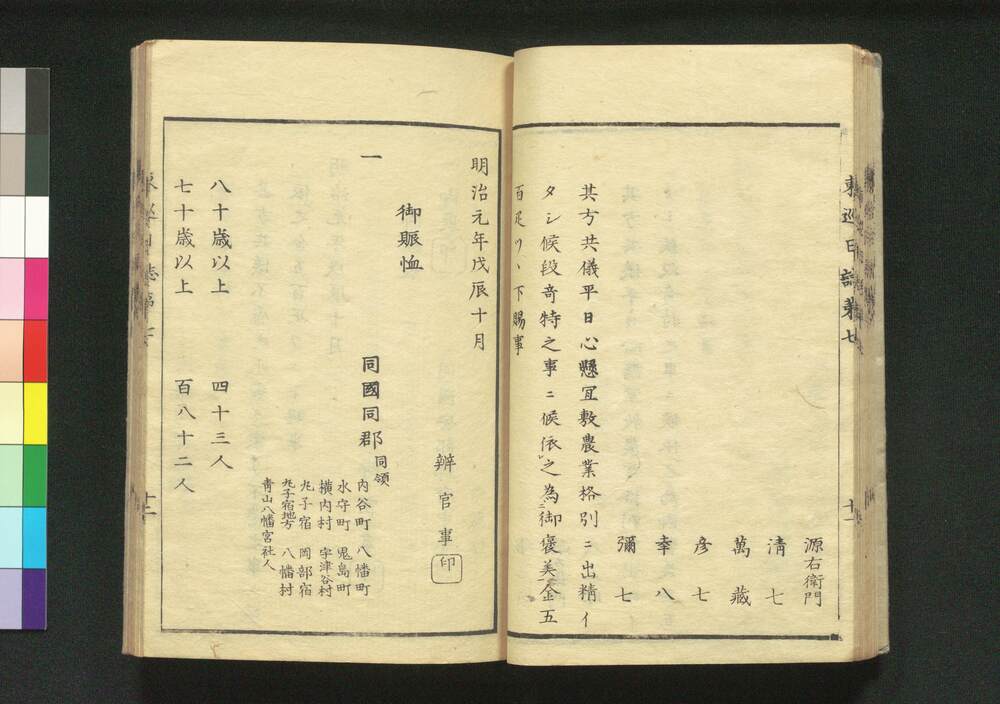 東巡日誌第七
十一
源右衛門
清七
萬藏
彦七
幸八
彌七
其方共儀平日心懸冝敷農業格別ニ出精イ
タシ候段竒特之事ニ候依之為御褒美金五
百疋ツヽ下賜事
明治元年戊辰十月
辨官事印
御賑恤
一
同國同郡同領
内谷町 八幡町
水守町 鬼島町
横内村 宇津谷村
丸子宿 岡部宿
丸子宿地方 八幡村
青山八幡宮社人
八十歳以上 四十三人
七十歳以上 百八十二人
十二